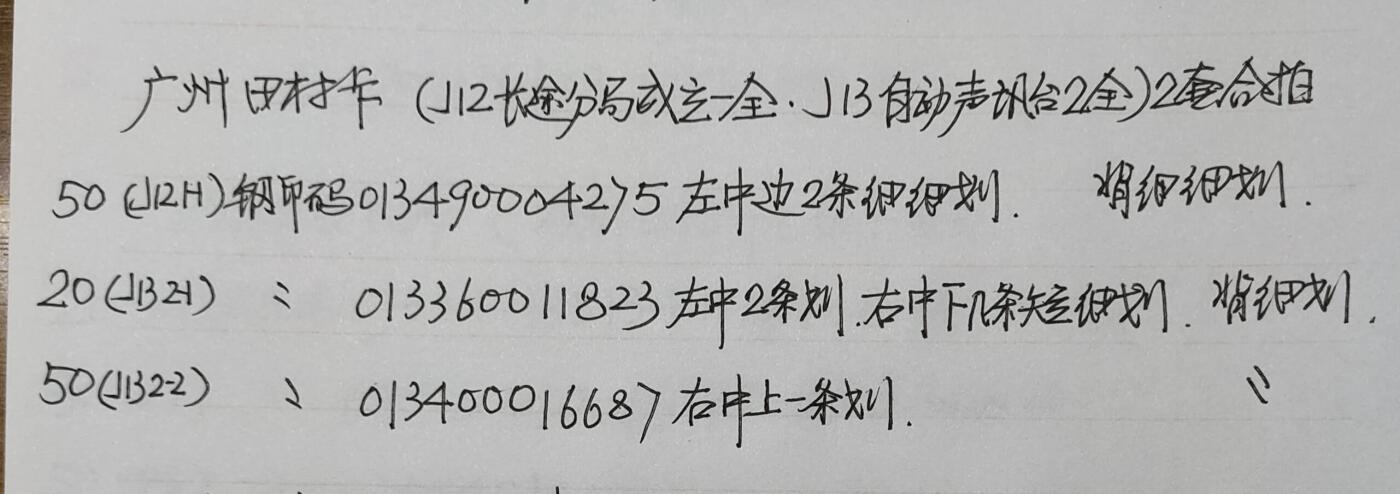 广州田村卡（J12长途分局成立一全.J13自动声讯台2全）2套合拍
50（J12-1）钢印码013490004275左中边2条细细划.　背细细划.
20（J132-1）〃 013360011823左中2条划.右中下几条短细划.背细划.
50（J132-2）〃 013400016687右中上一条划.　〃